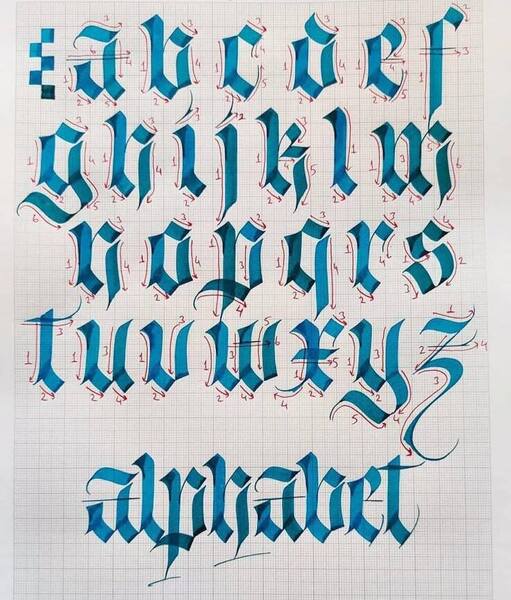 a b c d e f
g h i j k l m
n o p q r s
t u v w x y z
alphabet